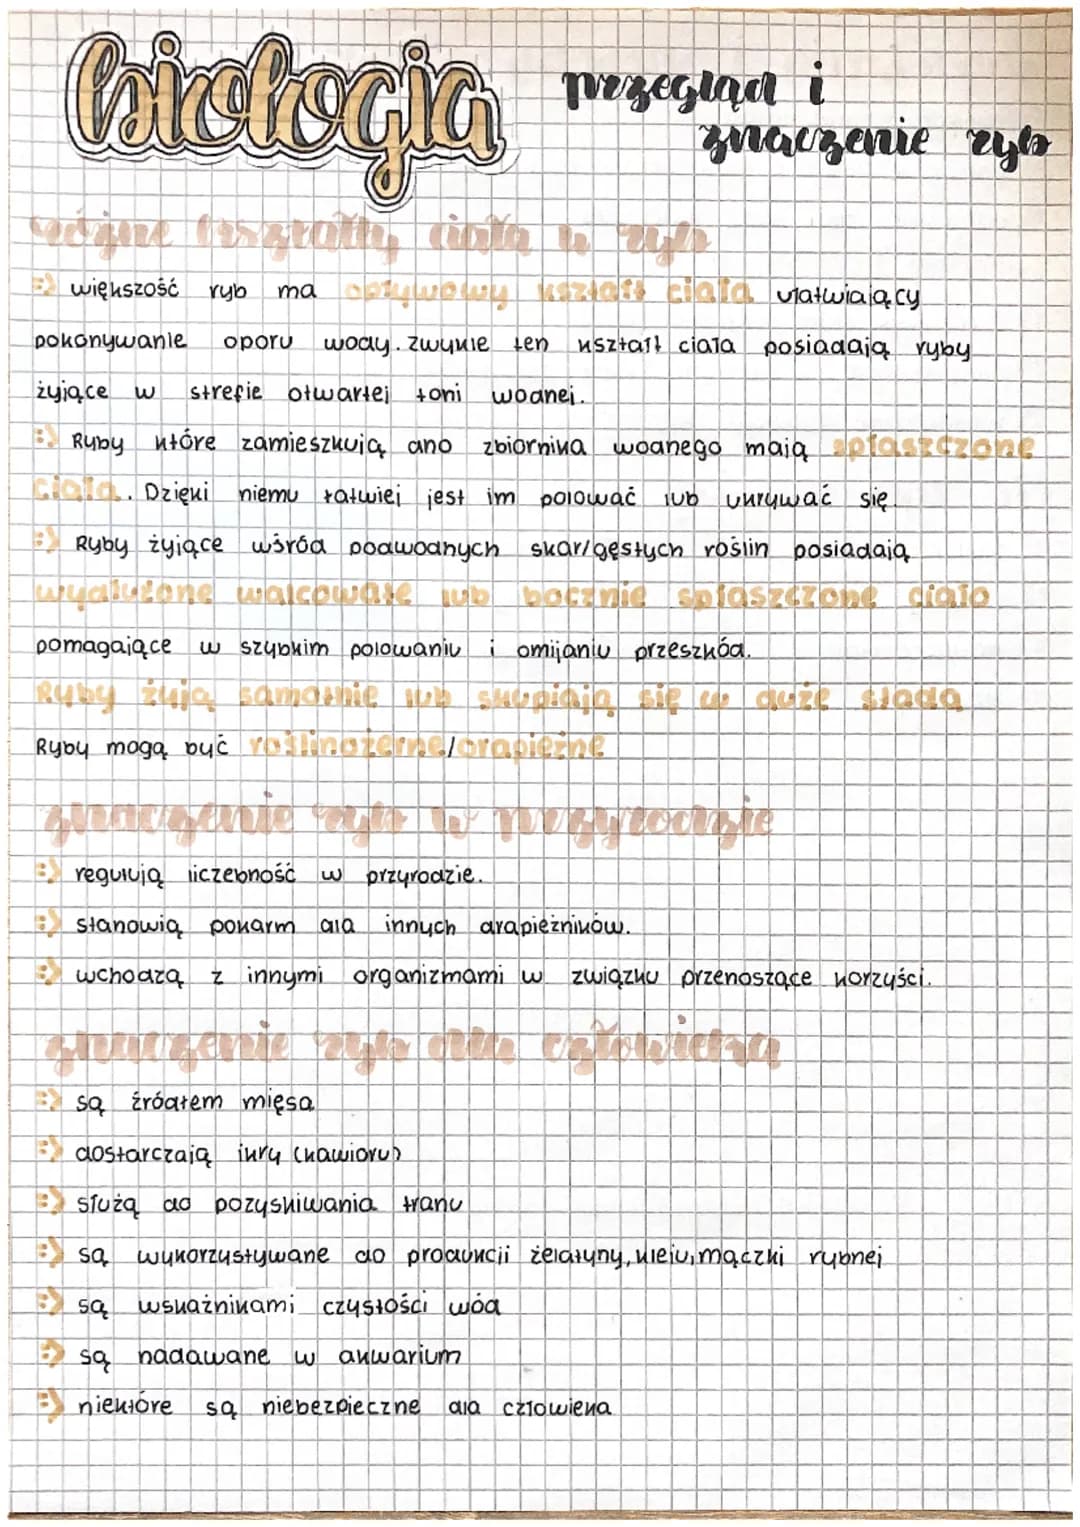 biologia
przegląd i
znaczenie ryb
różne kształty ciała u ryb
=> większość ryb ma opływowy kształt ciała ułatwiający
pokonywanie oporu wody. zwykle ten kształt ciała posiadają ryby
żyjące w strefie otwartej toni wodnej.
=> Ryby które zamieszkują dno zbiornika wodnego mają spłaszczone
ciała. Dzięki niemu łatwiej jest im polować lub ukrywać się.
=> Ryby żyjące wśród podwodnych skał/gęstych roślin posiadają
wydłużone walcowate lub bocznie spłaszczone ciało
pomagające w szybkim polowaniu i omijaniu przeszkód.
Ryby żyją samotnie lub skupiają się w duże stada
Ryby mogą być roślinożerne/drapieżne
znaczenie ryb w przyrodzie
=> regulują liczebność w przyrodzie.
=> stanowią pokarm dla innych drapieżników.
=> wchodzą z innymi organizmami w związku przenoszące korzyści.
znaczenie ryb dla człowieka
=> są źródłem mięsa
=> dostarczają ikry (kawioru)
=> służą do pozyskiwania tranu
=> są wykorzystywane do produkcji żelatyny, kleju, mączki rybnej
=> są wskaźnikami czystości wód
=> są nadawane w akwarium
=> niektóre są niebezpieczne dla człowieka